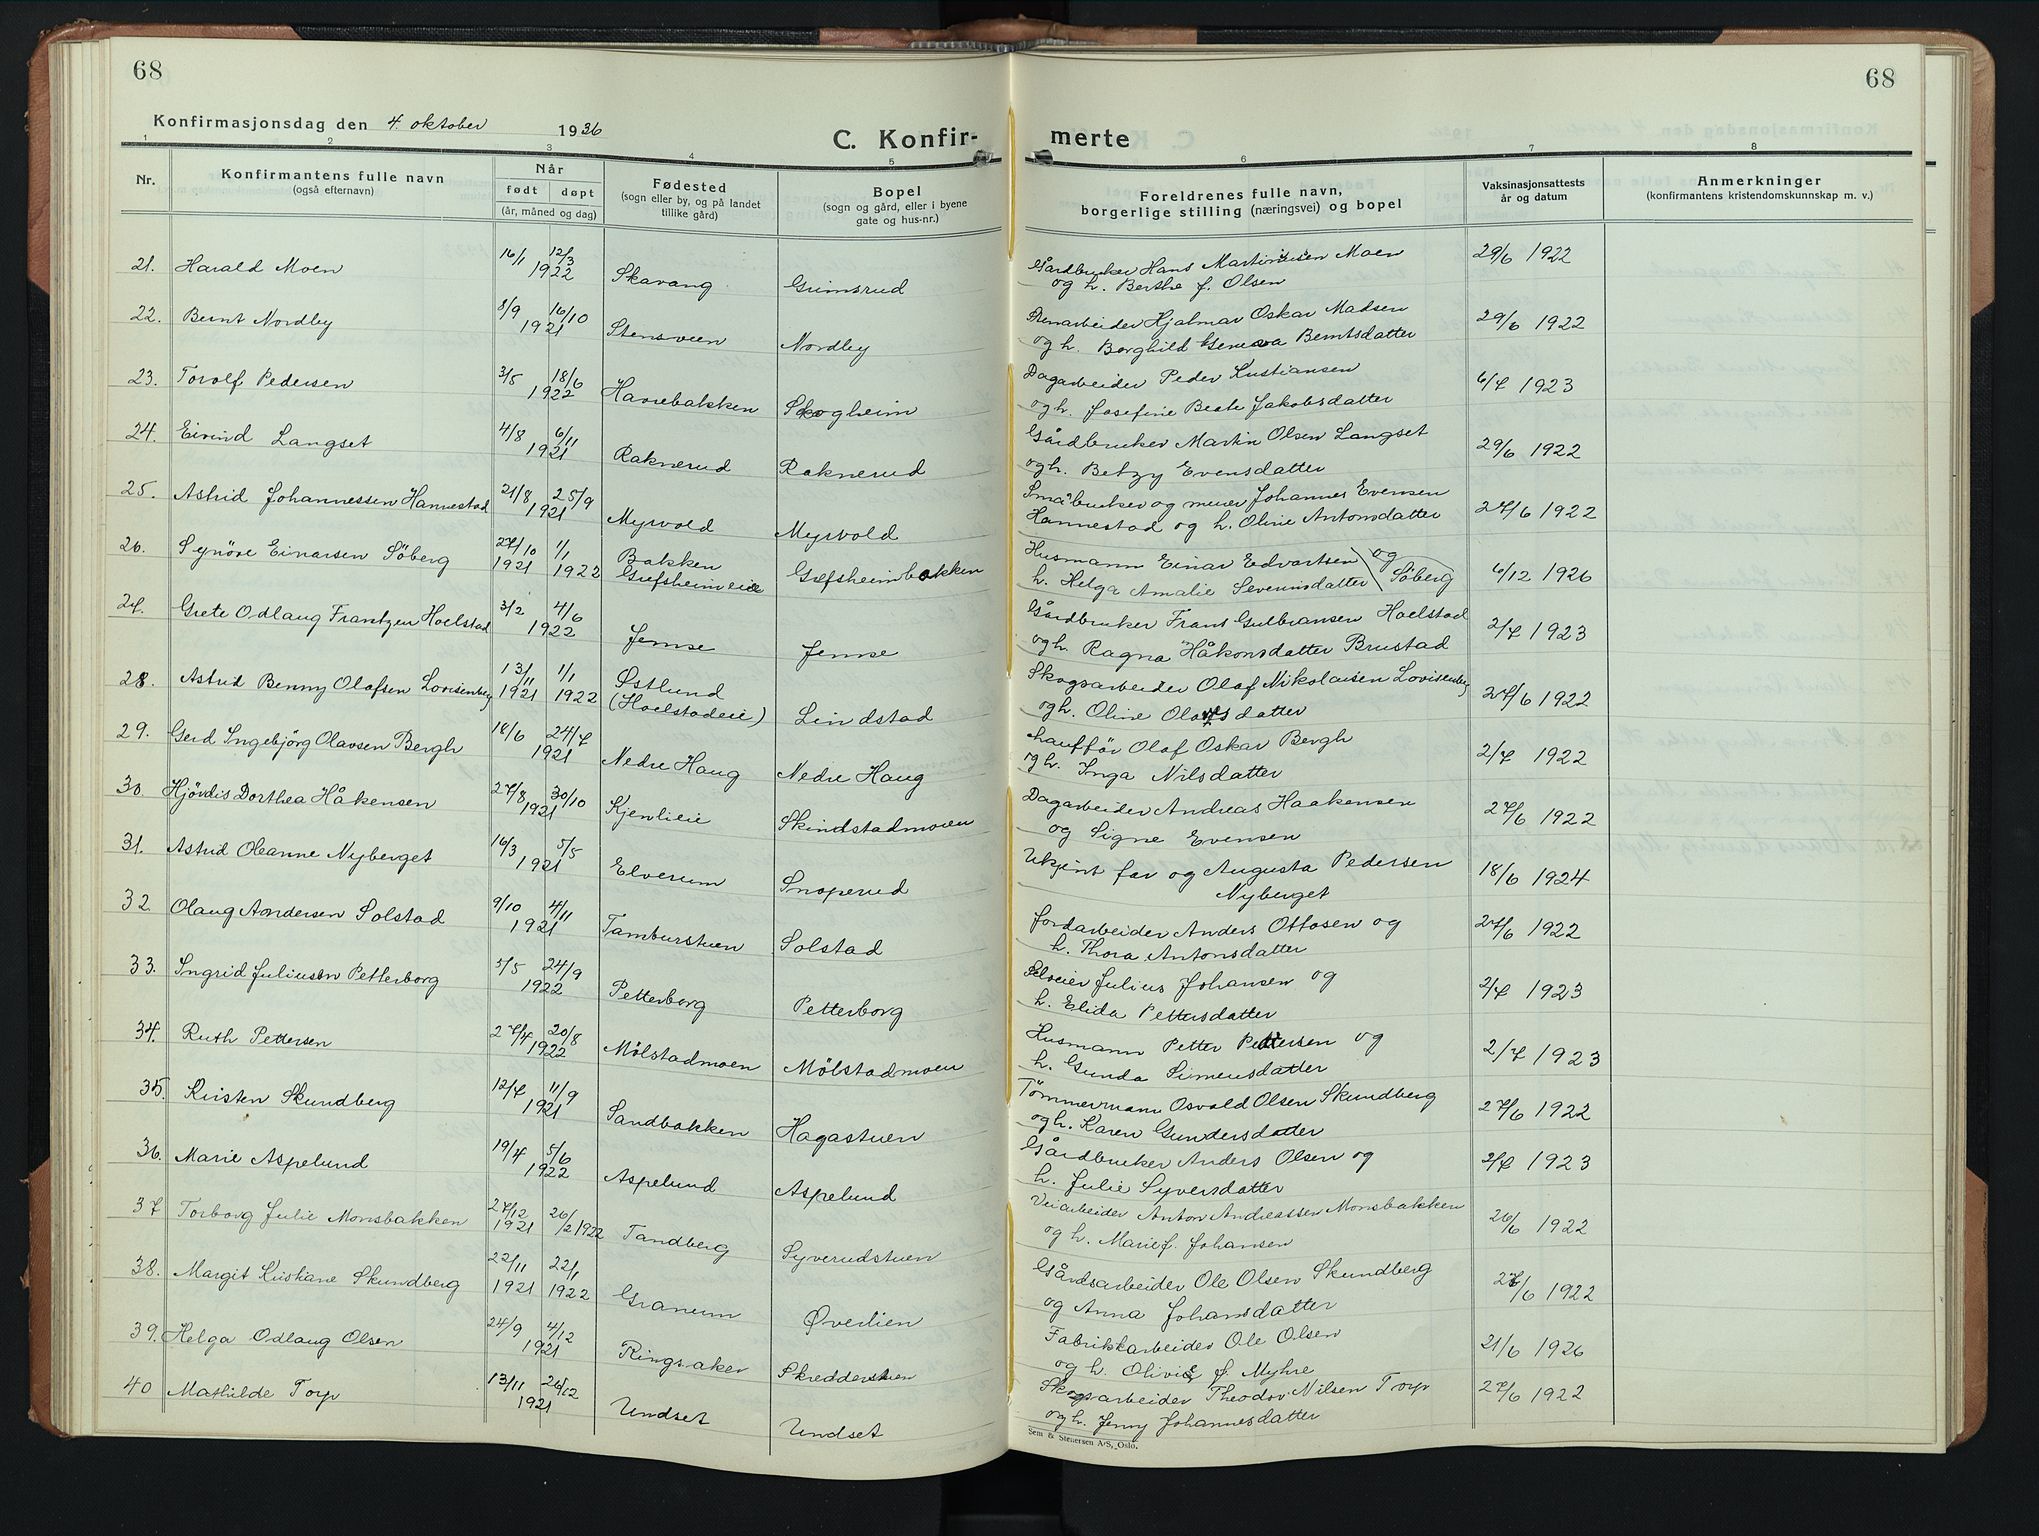 68
68
Konfirmasjonsdag den 4. oktober 1936
C. Konfir-
merte
1 2 3 4 5 6 7 8
Nr.
Konfirmantens fulle navn
(også efternavn)
Når
født døpt
(år, måned og dag)
Fødested
(sogn eller by, og på landet
tillike gård)
Bopel
(sogn og gård, eller i byene
gate og hus-nr.)
Foreldrenes fulle navn,
borgerlige stilling (næringsvei) og bopel
Vaksinasjonsattests
år og datum
Anmerkninger
(konfirmantens kristendomskunnskap m. v.)
21. Harald Moen 16/1 12/3 1922 Skavang Grimsrud Gårdbruker Hans Martinisen Moen
og h. Berthe f. Olsen 29/6 1922
22. Bernt Nordby 8/9 16/10 1921 Stensveen Nordby Stenarbeider Hjalmar Oskar Madsen
og h. Borghild Geneva Berntsdatter 29/6 1922
23. Torolf Pedersen 3/5 18/6 1922 Haverbakken Skogheim Dagarbeider Peder Kristiansen
og h. Josefine Beate Jakobsdatter 6/7 1923
24. Eivind Langset 4/8 6/11 1921 Raknerud Raknerud Gårdbruker Martin Olsen Langset
og h. Betzy Evensdatter 29/6 1922
25. Astrid Johannessen Hannestad 21/8 25/9 1921 Myrvold Myrvold Småbruker og murer Johannes Evensen
Hannestad og h. Oline Antonsdatter 27/6 1922
26. Synöve Einarsen Söberg 27/10 1921 1/1 1922 Bakken
Grefsheimeie Grefsheimbakken Husmann Einar Edvartsen og
h. Helga Amalie Severinsdatter Söberg 6/12 1926
27. Grete Odlaug Frantzen Hoelstad 3/2 4/6 1922 Jemse Jemse Gårdbruker Frans Gulbransen Hoelstad
og h. Ragna Håkonsdatter Brustad 2/7 1923
28. Astrid Benny Olafsen Lovisenberg 13/11 1921 1/1 1922 Østlund
(Hoelstadeie) Lindstad Skogsarbeider Olaf Nikolaisen Lovisenberg
og h. Oline Olavsdatter 27/6 1922
29. Gerd Ingebjörg Olavsen Bergh 18/6 24/7 1921 Nedre Haug Nedre Haug chaufför Olaf Oskar Bergh
og h. Inga Nilsdatter 2/7 1922
30 Hjördis Dorthea Håkensen 27/8 30/10 1921 Kjenlieie Skindstadmoen Dagarbeider Andreas Haakensen
og Signe Evensen 27/6 1922
31. Astrid Oleanne Nyberget 16/3 5/5 1921 Elverum Snaperud Ukjent far og Augusta Pedersen
Nyberget 18/6 1924
32. Olaug Andersen Solstad 9/10 4/11 1921 Tamburstuen Solstad Jordarbeider Anders Ottosen og
h. Thora Antonsdatter 27/6 1922
33. Ingrid Juliusen Petterborg 5/5 24/9 1922 Petterborg Petterborg Selveier Julius Johansen og
h. Elida Pettersdatter 2/7 1923
34. Ruth Pettersen 27/4 20/8 1922 Mölstadmoen Mölstadmoen Husmann Petter Pettersen og
h. Gunda Simensdatter 2/7 1923
35. Kristen Skundberg 12/7 11/9 1921 Sandbakken Hagastuen Tömmermann Osvald Olsen Skundberg
og h. Karen Gundersdatter 27/6 1922
36. Marie Aspelund 19/4 5/6 1922 Aspelund Aspelund Gårdbruker Anders Olsen og
h. Julie Syversdatter 2/7 1923
37 Torborg Julie Monsbakken 27/12 1921 26/2 1922 Tandberg Syverudstuen Veiarbeider Anton Andreassen Monsbakken
og h. Marie f. Johansen 26/6 1922
38. Margit Kristiane Skundberg 22/11 1921 22/1 1922 Graneim Øverlien Gårdsarbeider Ole Olsen Skundberg
og Anna Johansdatter 27/6 1922
39. Helga Odlaug Olsen 24/9 4/12 1921 Ringsaker Skredderstuen Fabrikkarbeider Ole Olsen
og h. Olivie f. Myhre 21/6 1926
40 Mathilde Torp 13/11 26/12 1921 Undset Undset Skogsarbeider Theodor Nilsen Torp
og h. Jenny Johannesdatter 27/6 1922
Sem & Stenersen A/S, Oslo.